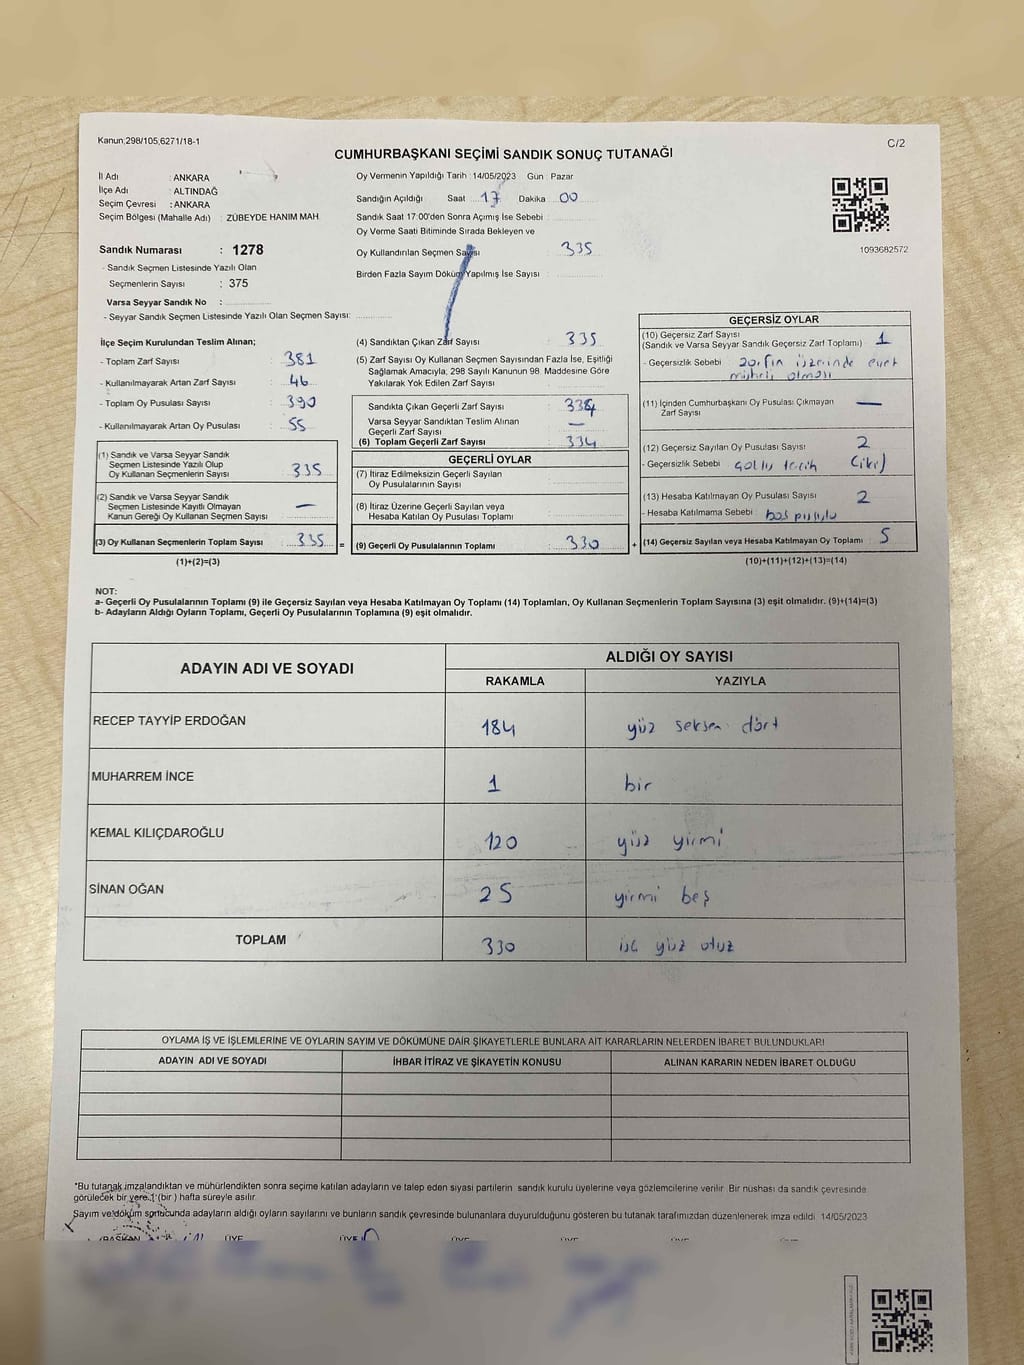 Kanun,298/105,6271/18-1
C/2
CUMHURBAŞKANI SEÇİMİ SANDIK SONUÇ TUTANAĞI
İl Adı : ANKARA
İlçe Adı : ALTINDAĞ
Seçim Çevresi : ANKARA
Seçim Bölgesi (Mahalle Adı) : ZÜBEYDE HANIM MAH.
Sandık Numarası : 1278
- Sandık Seçmen Listesinde Yazılı Olan
Seçmenlerin Sayısı : 375
Varsa Seyyar Sandık No :
- Seyyar Sandık Seçmen Listesinde Yazılı Olan Seçmen Sayısı:
Oy Vermenin Yapıldığı Tarih :14/05/2023 Gün : Pazar
Sandığın Açıldığı Saat 17 Dakika 00
Sandık Saat 17:00'den Sonra Açımış İse Sebebi :
Oy Verme Saati Bitiminde Sırada Bekleyen ve
Oy Kullandırılan Seçmen Sayısı : 335
Birden Fazla Sayım Döküm Yapılmış İse Sayısı :
1093682572
İlçe Seçim Kurulundan Teslim Alınan;
- Toplam Zarf Sayısı : 381
- Kullanılmayarak Artan Zarf Sayısı : 46
- Toplam Oy Pusulası Sayısı : 390
- Kullanılmayarak Artan Oy Pusulası : 55
(1) Sandık ve Varsa Seyyar Sandık
Seçmen Listesinde Yazılı Olup
Oy Kullanan Seçmenlerin Sayısı : 335
(2) Sandık ve Varsa Seyyar Sandık
Seçmen Listesinde Kayıtlı Olmayan
Kanun Gereği Oy Kullanan Seçmen Sayısı : —
(3) Oy Kullanan Seçmenlerin Toplam Sayısı : 335 =
(1)+(2)=(3)
(4) Sandıktan Çıkan Zarf Sayısı : 335
(5) Zarf Sayısı Oy Kullanan Seçmen Sayısından Fazla İse, Eşitliği
Sağlamak Amacıyla, 298 Sayılı Kanunun 98. Maddesine Göre
Yakılarak Yok Edilen Zarf Sayısı :
Sandıkta Çıkan Geçerli Zarf Sayısı : 334
Varsa Seyyar Sandıktan Teslim Alınan
Geçerli Zarf Sayısı : —
(6) Toplam Geçerli Zarf Sayısı : 334
GEÇERLİ OYLAR
(7) İtiraz Edilmeksizin Geçerli Sayılan
Oy Pusulalarının Sayısı :
(8) İtiraz Üzerine Geçerli Sayılan veya
Hesaba Katılan Oy Pusulası Toplamı :
(9) Geçerli Oy Pusulalarının Toplamı : 330 +
GEÇERSİZ OYLAR
(10) Geçersiz Zarf Sayısı :
(Sandık ve Varsa Seyyar Sandık Geçersiz Zarf Toplamı) 1
- Geçersizlik Sebebi : zarfın üzerinde evet
mühürü olması
(11) İçinden Cumhurbaşkanı Oy Pusulası Çıkmayan
Zarf Sayısı : —
(12) Geçersiz Sayılan Oy Pusulası Sayısı : 2
- Geçersizlik Sebebi : tercih (iki)
(13) Hesaba Katılmayan Oy Pusulası Sayısı : 2
- Hesaba Katılmama Sebebi : boş pusula
(14) Geçersiz Sayılan veya Hesaba Katılmayan Oy Toplamı : 5
(10)+(11)+(12)+(13)=(14)
NOT:
a- Geçerli Oy Pusulalarının Toplamı (9) ile Geçersiz Sayılan veya Hesaba Katılmayan Oy Toplamı (14) Toplamları, Oy Kullanan Seçmenlerin Toplam Sayısına (3) eşit olmalıdır. (9)+(14)=(3)
b- Adayların Aldığı Oyların Toplamı, Geçerli Oy Pusulalarının Toplamına (9) eşit olmalıdır.
ADAYIN ADI VE SOYADI ALDIĞI OY SAYISI
RAKAMLA YAZIYLA
RECEP TAYYİP ERDOĞAN 184 yüz seksen dört
MUHARREM İNCE 1 bir
KEMAL KILIÇDAROĞLU 120 yüz yirmi
SİNAN OĞAN 25 yirmi beş
TOPLAM 330 üç yüz otuz
OYLAMA İŞ VE İŞLEMLERİNE VE OYLARIN SAYIM VE DÖKÜMÜNE DAİR ŞİKAYETLERLE BUNLARA AİT KARARLARIN NELERDEN İBARET BULUNDUKLARI
ADAYIN ADI VE SOYADI İHBAR İTİRAZ VE ŞİKAYETİN KONUSU ALINAN KARARIN NEDEN İBARET OLDUĞU
*Bu tutanak imzalandıktan ve mühürlendikten sonra seçime katılan adayların ve talep eden siyasi partilerin sandık kurulu üyelerine veya gözlemcilerine verilir. Bir nüshası da sandık çevresinde
görülecek bir yere 1 (bir) hafta süreyle asılır.
Sayım ve döküm sonucunda adayların aldığı oyların sayılarını ve bunların sandık çevresinde bulunanlara duyurulduğunu gösteren bu tutanak tarafımızdan düzenlenerek imza edildi. 14/05/2023
BAŞKAN ÜYE ÜYE ÜYE ÜYE ÜYE ÜYE